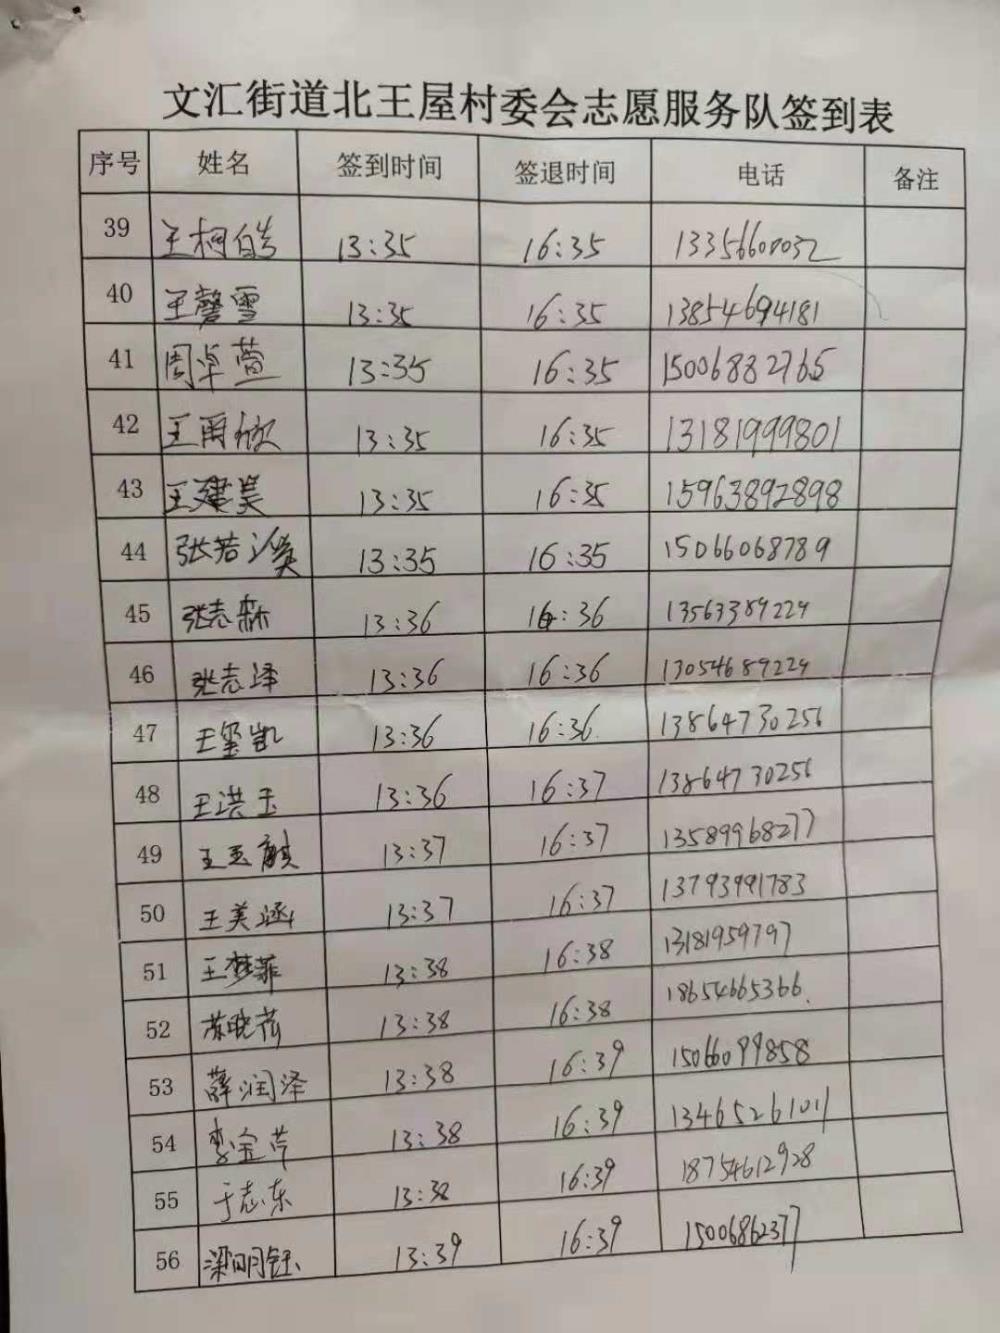 文汇街道北王屋村委会志愿服务队签到表
序号 姓名 签到时间 签退时间 电话 备注
39 王柯皓 13:35 16:35 13356600032
40 王馨雪 13:35 16:35 13854694181
41 周卓萱 13:35 16:35 15006882765
42 王雨欣 13:35 16:35 13181999801
43 王建昊 13:35 16:35 15963892898
44 张若溪 13:35 16:35 15066068789
45 张志森 13:36 16:36 13563389224
46 张志泽 13:36 16:36 13054689224
47 王玺凯 13:36 16:36 13864730256
48 王洪玉 13:36 16:37 13864730256
49 王玉麒 13:37 16:37 13589968277
50 王美涵 13:37 16:37 13793991783
51 王梦菲 13:38 16:38 13181959797
52 苏晓 13:38 16:38 18654665366
53 薛润泽 13:38 16:39 15066099858
54 李金芹 13:38 16:39 13465261011
55 于志东 13:38 16:39 18754612928
56 梁明钰 13:39 16:39 15006862377